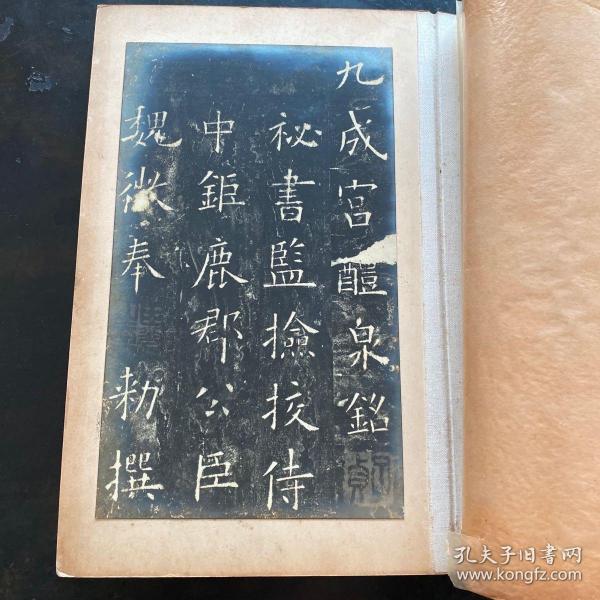 九成宮醴泉銘
祕書監撿挍侍
中鉅鹿郡公臣
魏徵奉 敕撰
孔夫子旧书网
www.kongfz.com